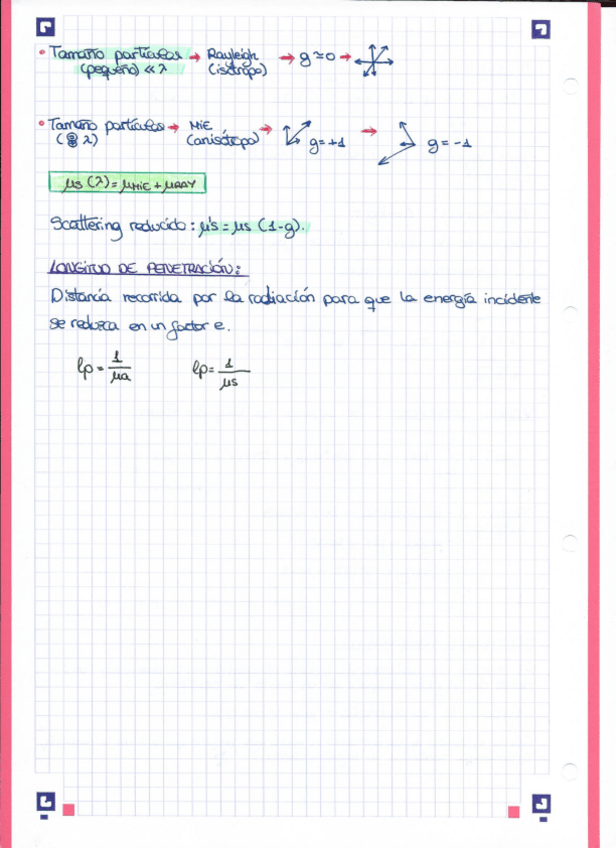 • Tamaño partículas → Rayleigh → g ≃ 0 →
(pequeño) << λ (isótropo)
• Tamaño partículas → MiE → g = +1 → g = -1
( λ) (anisótropo)
μs (λ) = μMIE + μRAY
Scattering reducido: μ's = μs (1-g).
LONGITUD DE PENETRACIÓN:
Distancia recorrida por la radiación para que la energía incidente
se reduzca en un factor e.
lp = 1/μa lp = 1/μs